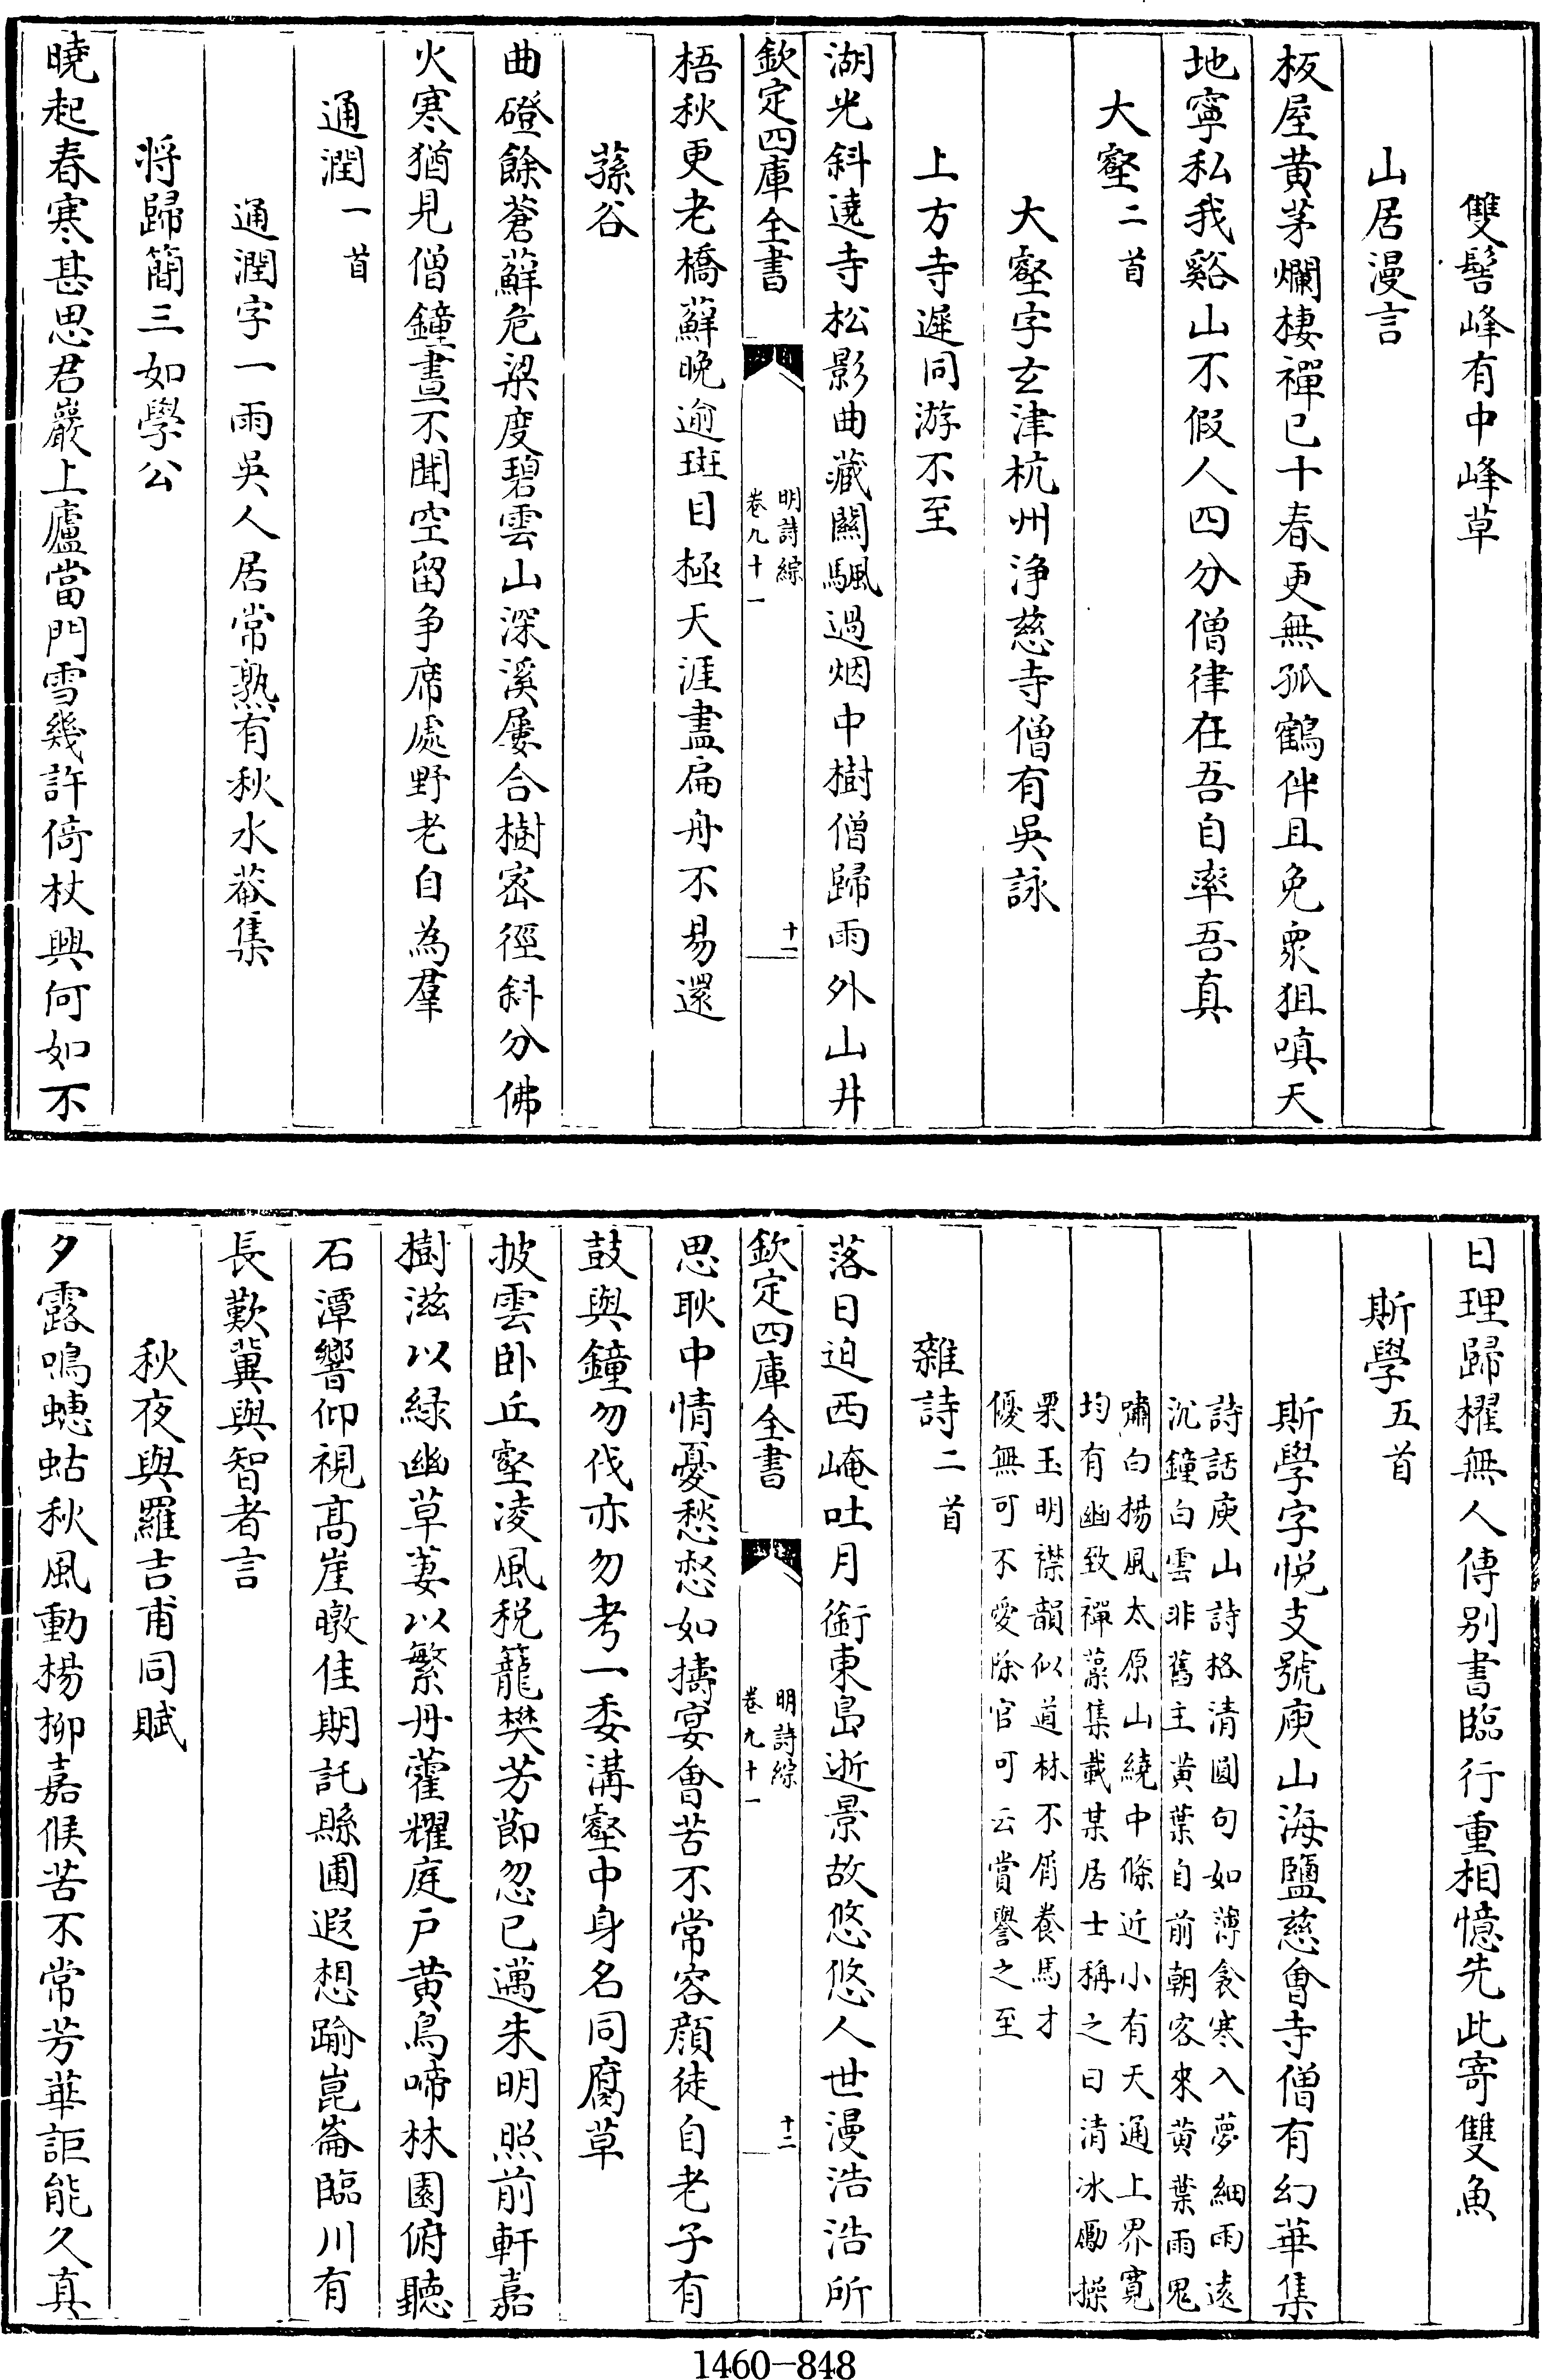 雙髻峰有中峰草
山居漫言
板屋黄茅爛棲禪已十春更無孤鶴伴且免衆狙嗔天
地寧私我谿山不假人四分僧律在吾自率吾真
大壑二首
大壑字玄津杭州浄慈寺僧有吳詠
上方寺遲同游不至
湖光斜遶寺松影曲藏關颿過烟中樹僧歸雨外山井
欽定四庫全書
明詩綜
卷九十一
十一
梧秋更老橋蘚晚逾斑目極天涯盡扁舟不易還
蓀谷
曲磴餘蒼蘚危梁度碧雲山深溪屢合樹宻徑斜分佛
火寒猶見僧鐘晝不聞空留争席處野老自為羣
通潤一首
通潤字一雨吳人居常熟有秋水菴集
将歸簡三如學公
曉起春寒甚思君巖上廬當門雪幾許倚杖興何如不
日理歸櫂無人傳别書臨行重相憶先此寄雙魚
斯學五首
斯學字悦支號庾山海鹽慈會寺僧有幻華集
詩話庾山詩格清圓句如薄衾寒入夢細雨遠
沉鐘白雲非舊主黄葉自前朝客來黄葉雨鬼
嘯白揚風太原山繞中條近小有天通上界寛
均有幽致禪藻集載某居士稱之曰清冰勵操
栗玉明襟韻似道林不屑養馬才
優無可不愛除官可云賞譽之至
雜詩二首
落日迫西崦吐月銜東島逝景故悠悠人世漫浩浩所
欽定四庫全書
明詩綜
卷九十一
十二
思耿中情憂愁惄如擣宴會苦不常容顔徒自老子有
鼓與鐘勿伐亦勿考一委溝壑中身名同腐草
披雲卧丘壑凌風税籠樊芳節忽已邁朱明照前軒嘉
樹滋以緑幽草萋以繁丹藿耀庭户黄鳥啼林園俯聽
石潭響仰視髙崖暾佳期託縣圃遐想踰崑崙臨川有
長歎冀與智者言
秋夜與羅吉甫同賦
夕露鳴蟪蛄秋風動楊柳嘉候苦不常芳華詎能久真
1460-848